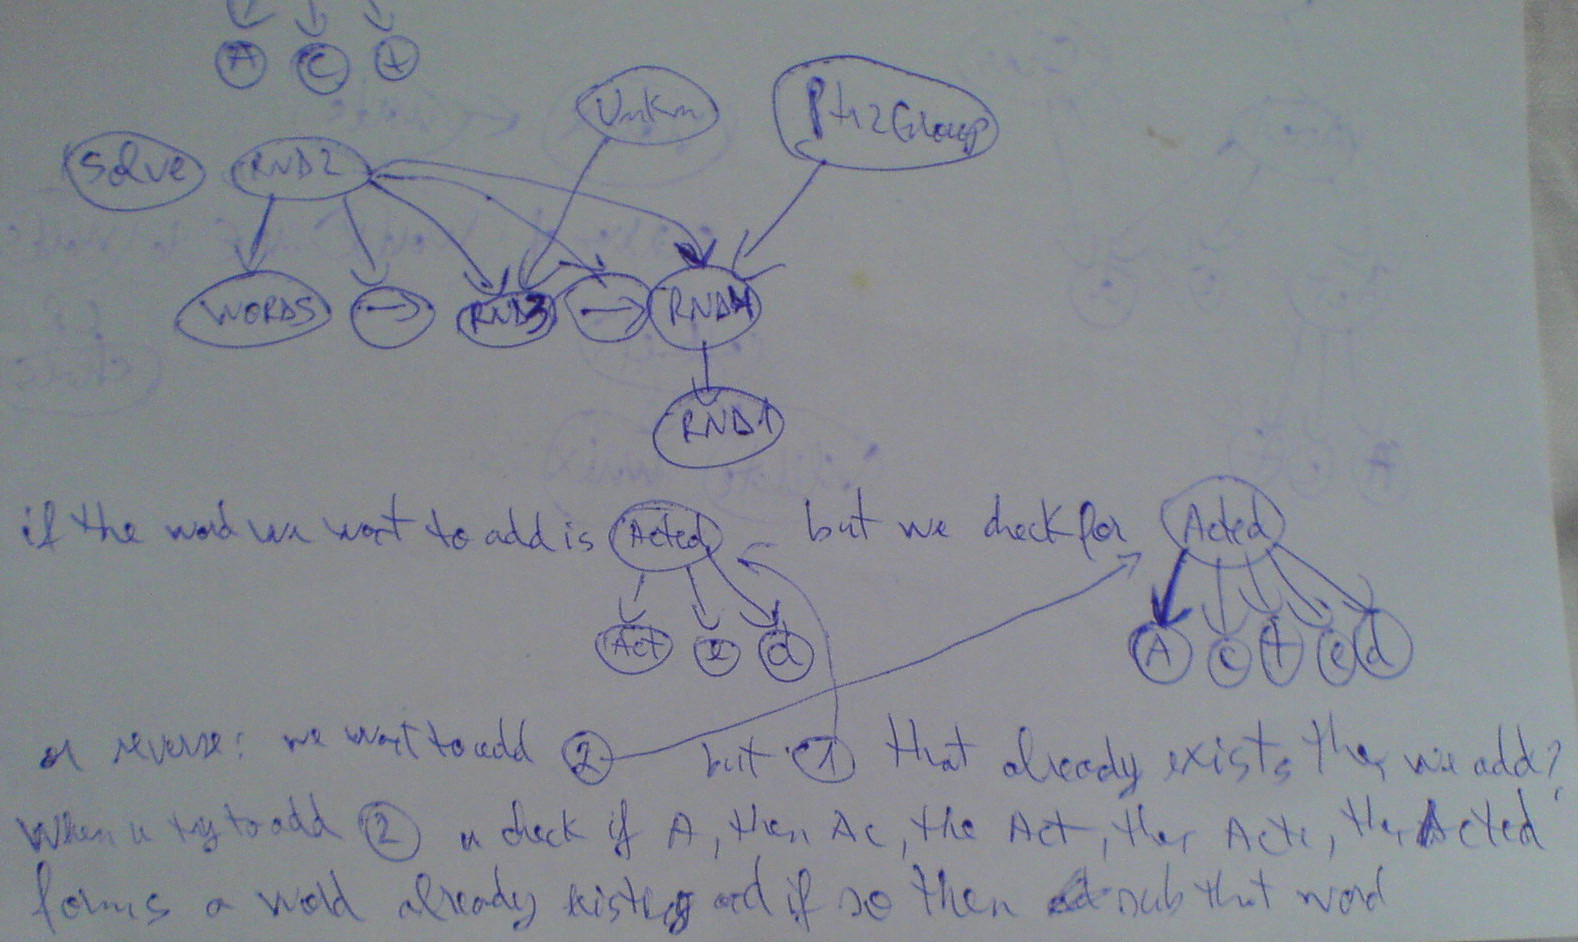 A C t
Unkn Ptr2Group
Solve RND2
WORDS → RND3 → RND4
RND1
if the word we want to add is Acted but we check for Acted
Act e d A c t e d
or reverse: we want to add 2 but 1 that already exists then we add?
When u try to add 2 u check if A, then Ac, the Act, then Acte, then Acted
forms a world already existing and if so then sub that word